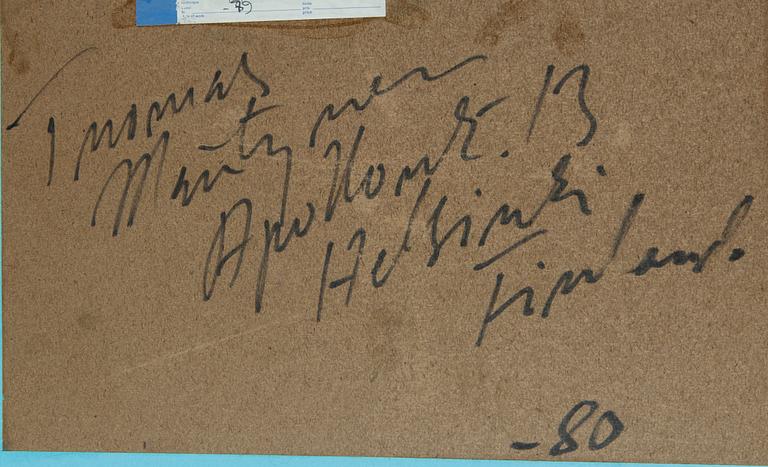 Tuomas
Mäntynen
Apollonk. 13
Helsinki
Finland.
-80